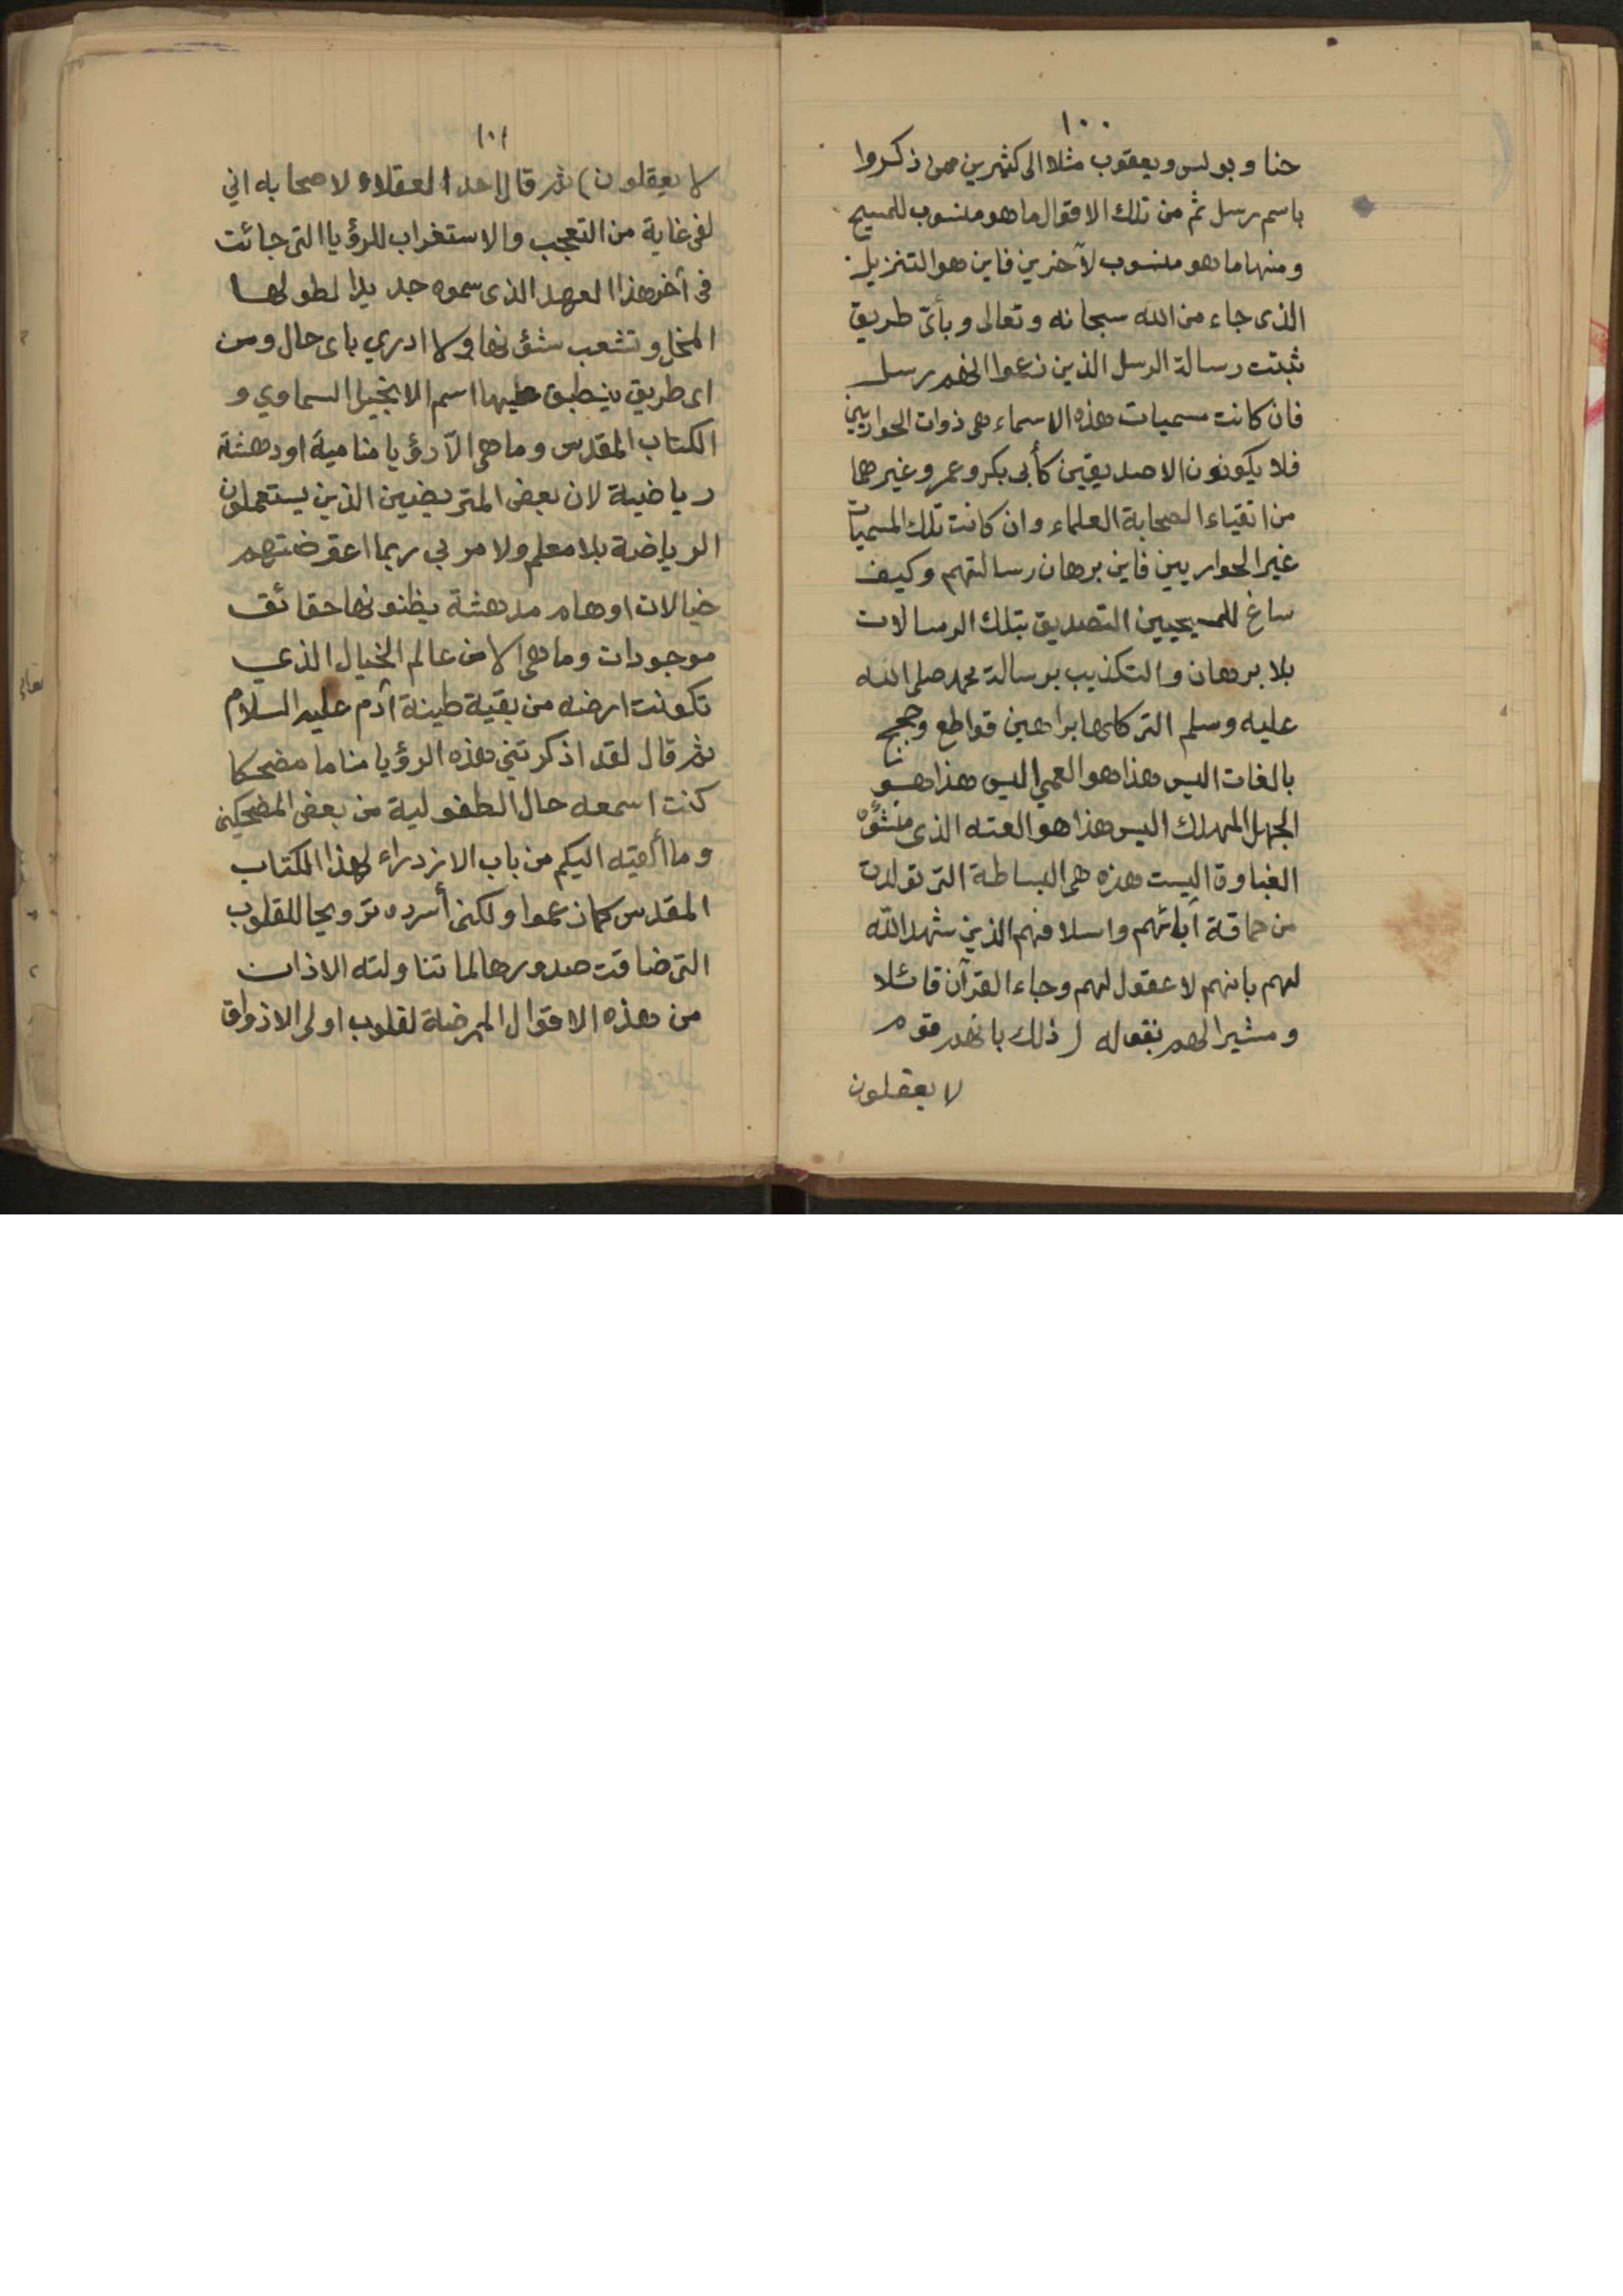 ١٠٠
حنا وبولس ويعقوب مثلا الى كثيرين ممن ذكروا
باسم رسل ثم من تلك الاقوال ما هو منسوب للمسيح
ومنها ما هو منسوب لآخرين فاين هو التنزيل
الذى جاء من الله سبحانه وتعالى وبأىّ طريق
ثبتت رسالة الرسل الذين زعموا انهم رسل
فان كانت مسميات هذه الاسماء هى ذوات الحواريين
فلا يكونون الا صديقين كأبى بكر وعمر وغيرهما
من اتقياء الصحابة العلماء وان كانت تلك المسميات
غير الحواريين فاين برهان رسالتهم وكيف
ساغ للمسيحيين التصديق بتلك الرسالات
بلا برهان والتكذيب برسالة محمد صلى الله
عليه وسلم التى كلها براهين قواطع وحجج
بالغات اليس هذا هو العمي اليس هذا هو
الجهل المهلك اليس هذا هو العته الذى منشؤه
الغباوة اليست هذه هى البساطة التى تولدت
من حماقة آبائهم واسلافهم الذين شهد الله
لهم بانهم لا عقول لهم وجاء القرآن قائلا
ومشيرا لهم بقوله ( ذلك بانهم قوم
لا يعقلون
١٠١
لا يعقلون) ثم قال احد العقلاء لاصحابه اني
لفى غاية من التعجب والاستغراب للرؤيا التى جائت
فى أخر هذا العهد الذى سموه جديدا لطولها
المخل وتشعب شؤنها ولا ادري باى حال ومن
اى طريق ينطبق عليها اسم الانجيل السماوي و
الكتاب المقدس وما هى الّا رؤيا منامية او دهشة
رياضية لان بعض المتريضين الذين يستعملون
الرياضة بلا معلم ولا مربي ربما اعترضتهم
خيالات اوهام مدهشة يظنونها حقائق
موجودات وما هى الا من عالم الخيال الذي
تكونت ارضه من بقية طينة آدم عليه السلام
ثم قال لقد اذكرتنى هذه الرؤيا مناما مضحكا
كنت اسمعه حال الطفولية من بعض المضحكين
وما ألقيته اليكم من باب الازدراء لهذا الكتاب
المقدس كما زعموا ولكنى أسرده ترويحا للقلوب
التى ضاقت صدورها لما تناولته الاذان
من هذه الاقوال الممرضة لقلوب اولى الاذواق